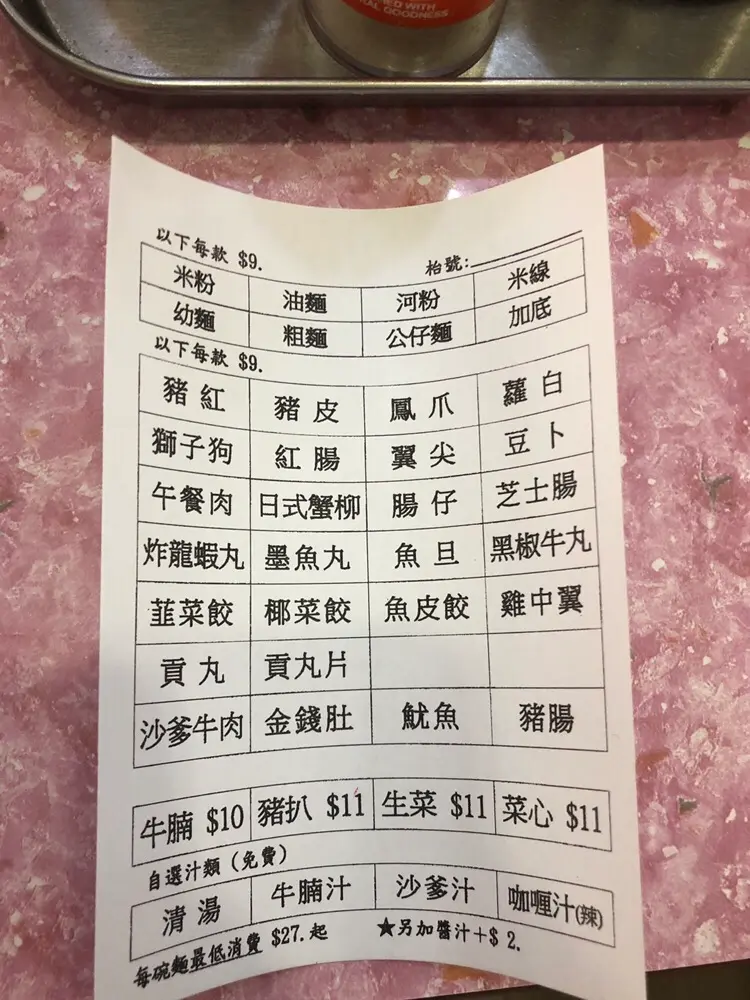 ED WITH
AL GOODNESS
以下每款 $9. 枱號:
米粉 油麵 河粉 米線
幼麵 粗麵 公仔麵 加底
以下每款 $9.
豬紅 豬皮 鳳爪 蘿白
獅子狗 紅腸 翼尖 豆卜
午餐肉 日式蟹柳 腸仔 芝士腸
炸龍蝦丸 墨魚丸 魚旦 黑椒牛丸
韮菜餃 椰菜餃 魚皮餃 雞中翼
貢丸 貢丸片
沙爹牛肉 金錢肚 魷魚 豬腸
牛腩 $10 豬扒 $11 生菜 $11 菜心 $11
自選汁類(免費)
清湯 牛腩汁 沙爹汁 咖喱汁(辣)
每碗麵最低消費 $27.起 ★另加醬汁+$ 2.